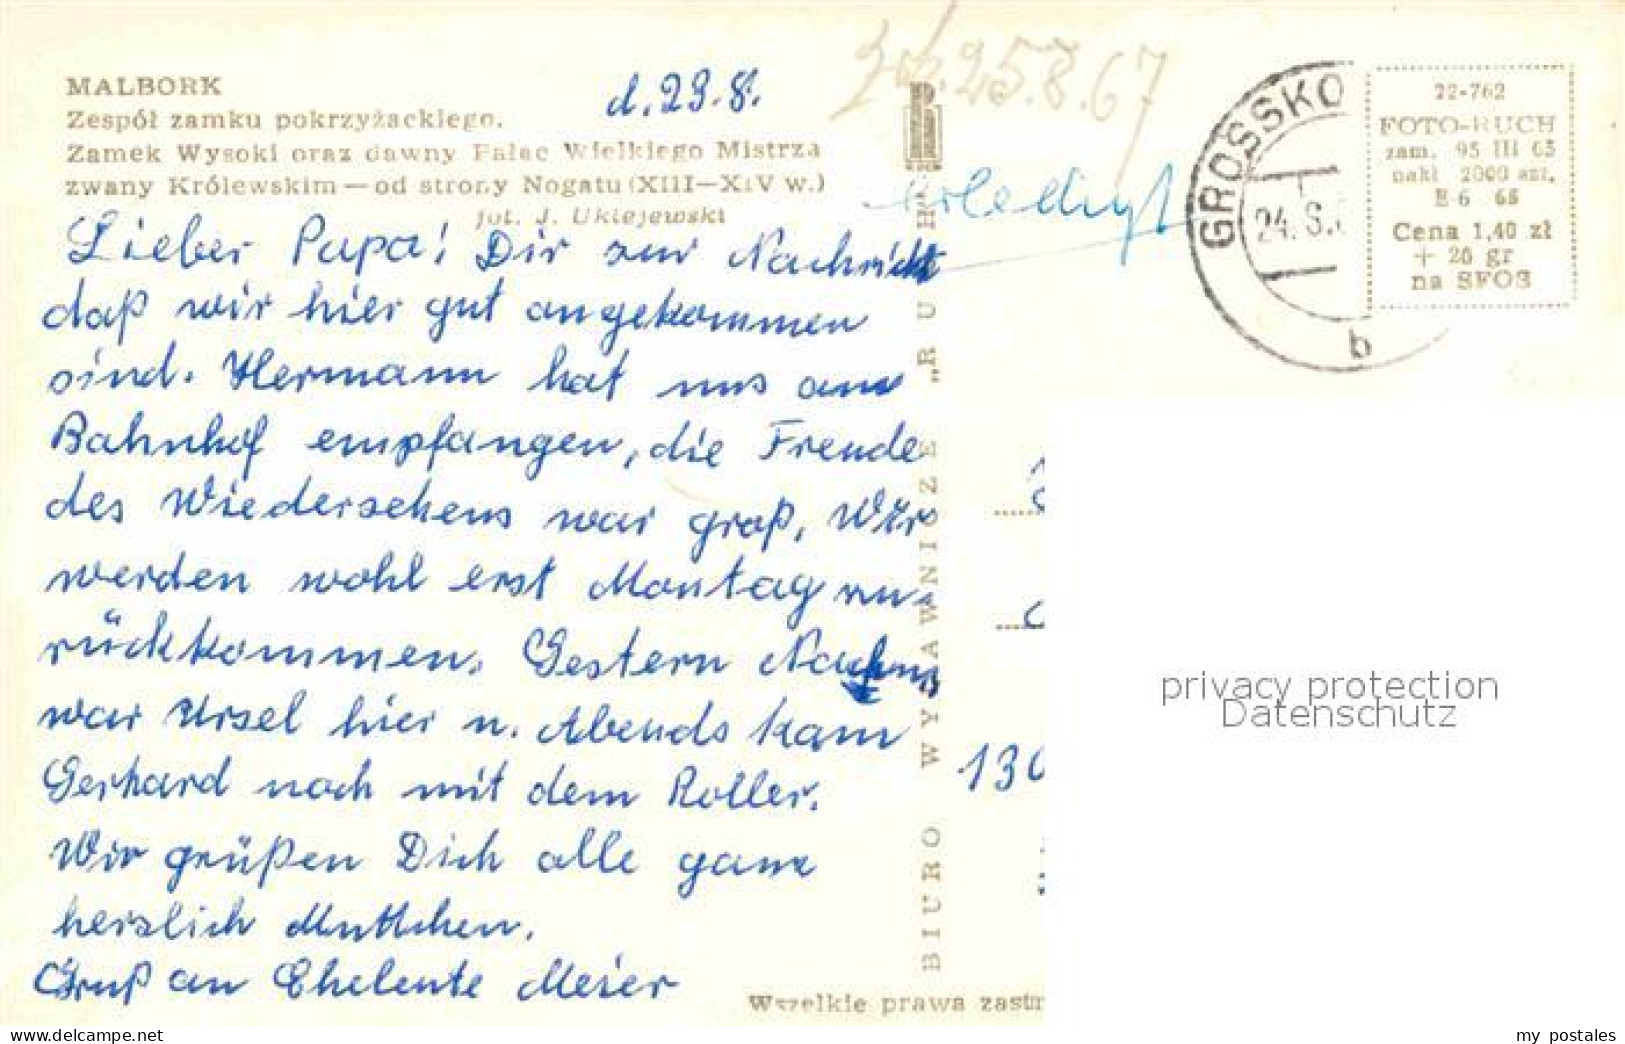 MALBORK
Zespół zamku pokrzyżackiego.
Zamek Wysoki oraz dawny Pałac Wielkiego Mistrza
zwany Królewskim — od strony Nogatu (XIII—XIV w.)
fot. J. Uklejewski
d. 23.8.
25.8.67
erledigt
Lieber Papa! Dir zur Nachricht
daß wir hier gut angekommen
sind. Hermann hat uns am
Bahnhof empfangen, die Freude
des Wiedersehens war groß, Wir
werden wohl erst Montag zu-
rückkommen. Gestern Nachm
war Ursel hier u. Abends kam
Gerhard noch mit dem Roller.
Wir grüßen Dich alle ganz
herzlich Muttchen.
Gruß an Eheleute Meier
BIURO WYDAWNICZE „RUCH"
GROSSKO
24. 8.
b
22-762
FOTO-RUCH
zam. 95 III 65
nakł 2000 szt.
E-6 66
Cena 1,40 zł
+ 20 gr
na SFOS
130
Wszelkie prawa zastr
privacy protection
Datenschutz
www.ansichtskartenversand.com
my postales